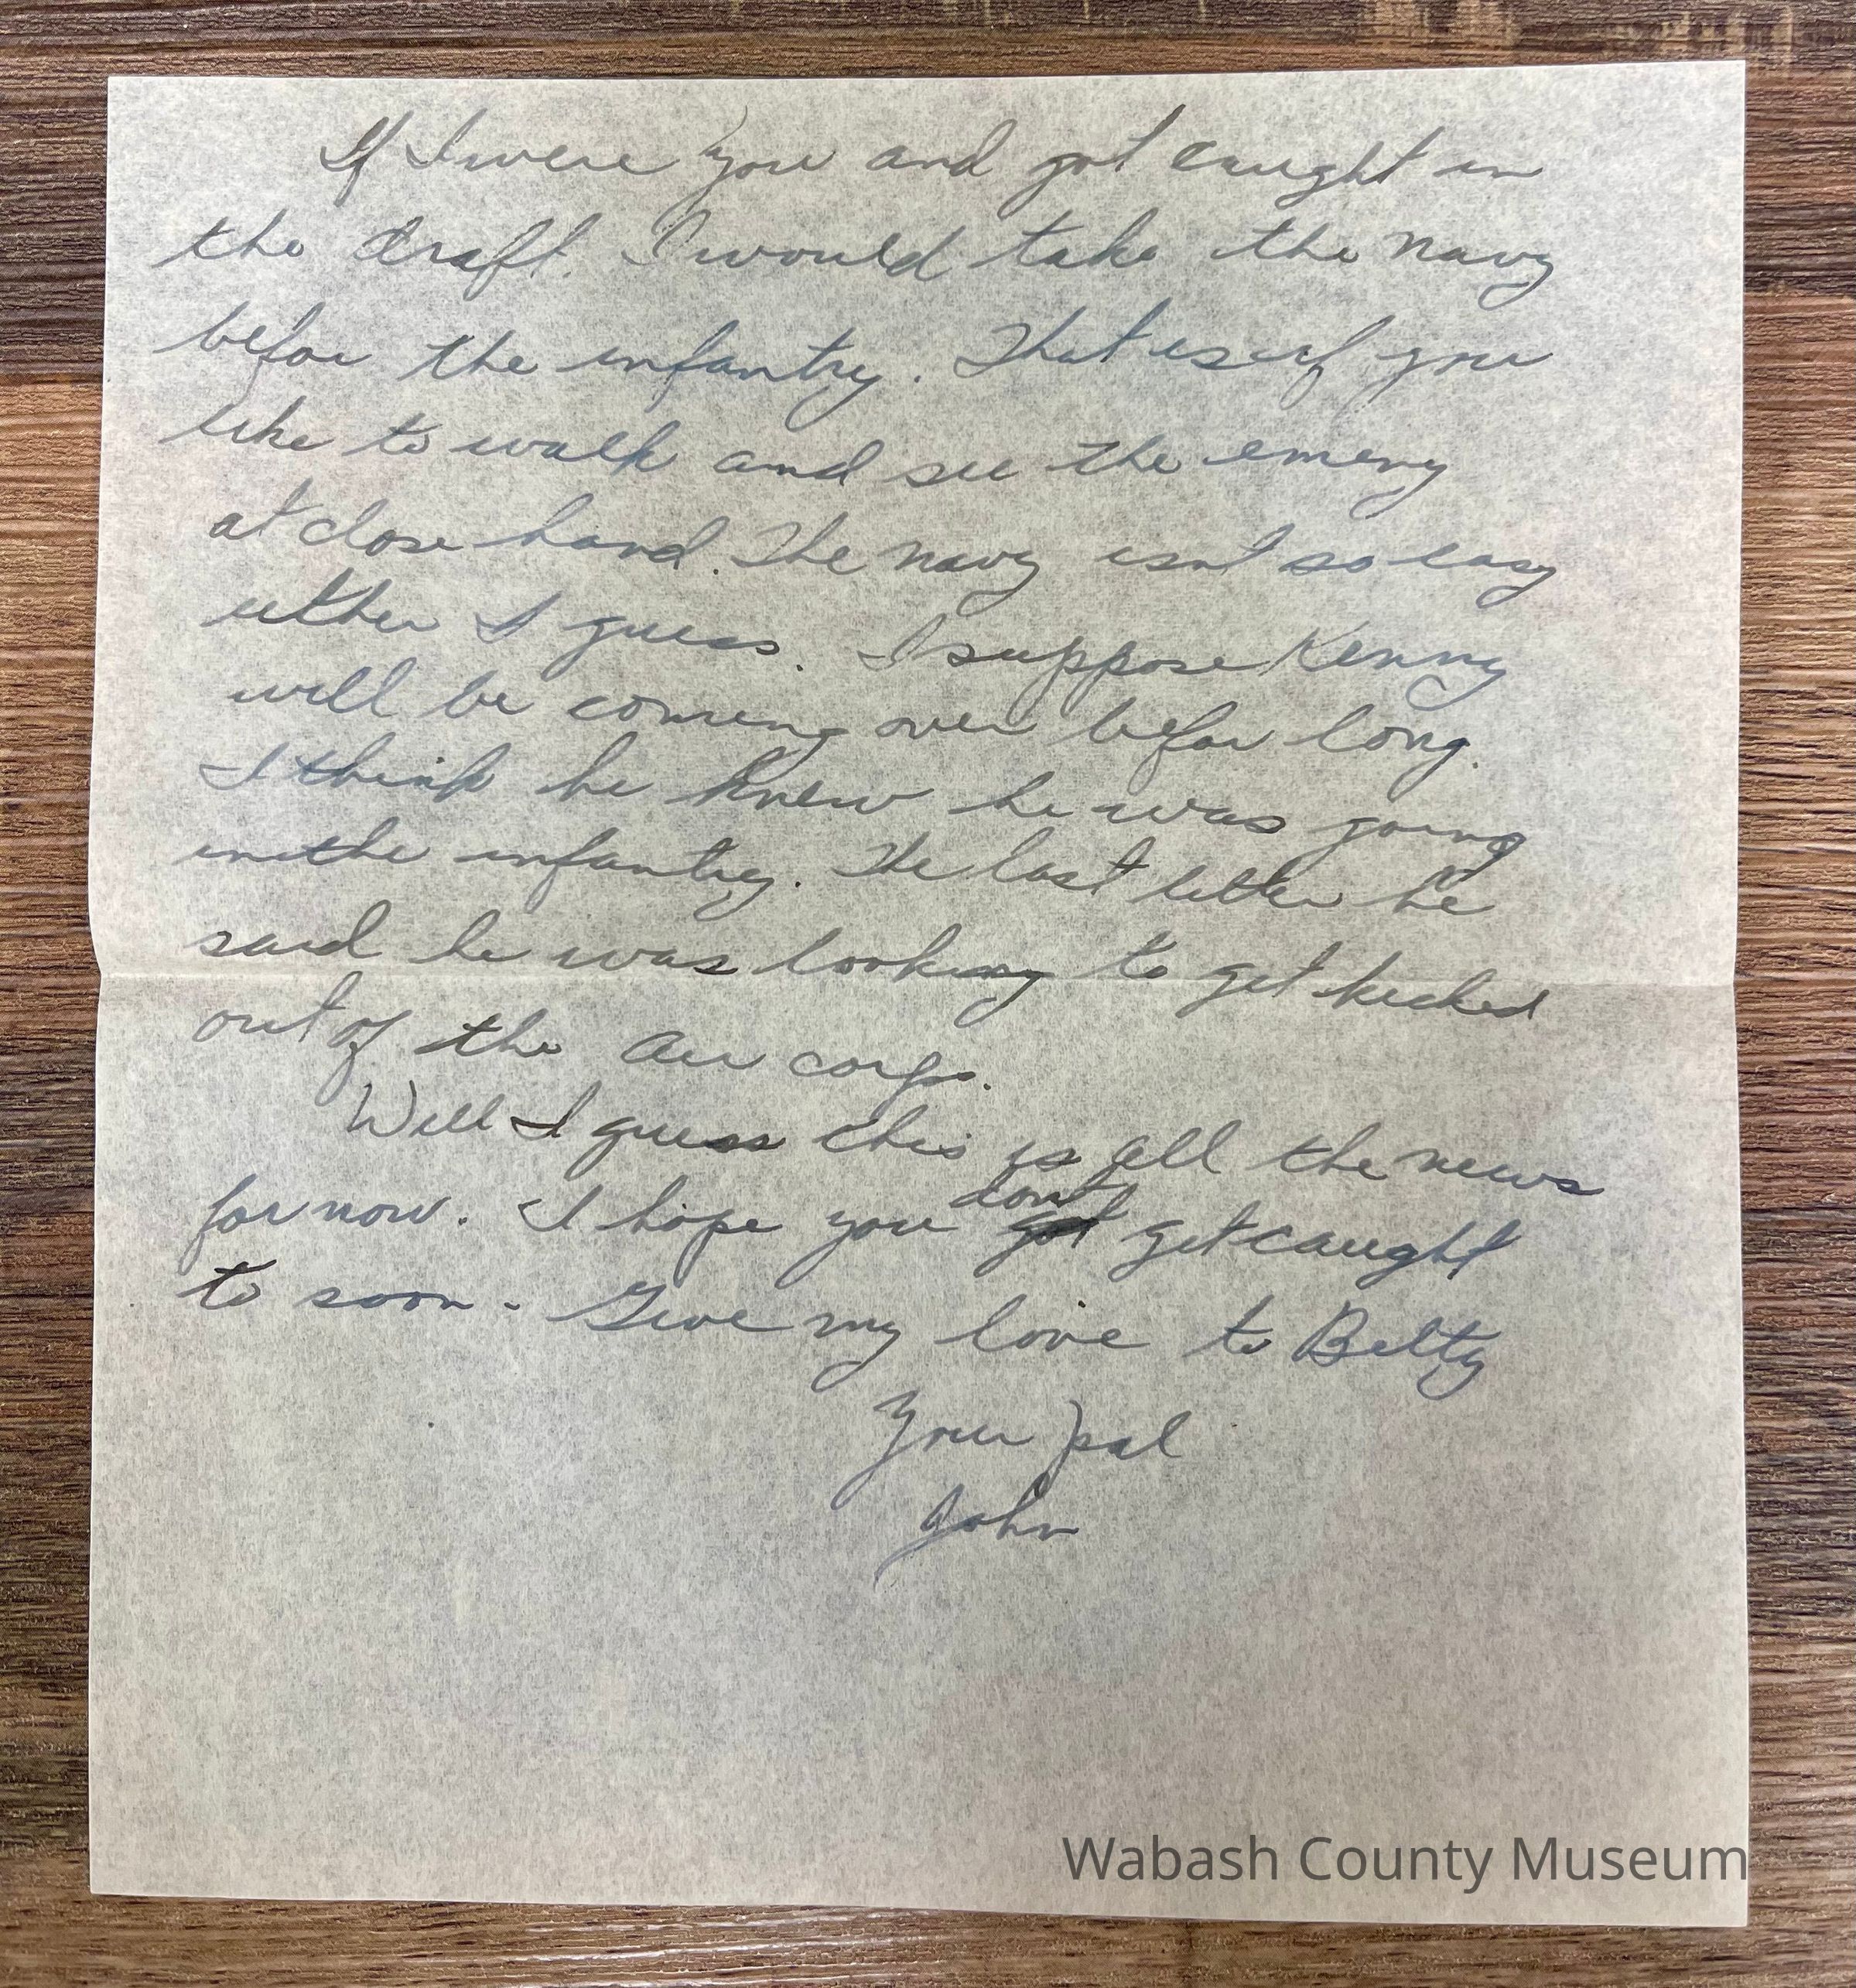 If I were you and got caught in
the draft. I would take the navy
befor the infantry. That is if you
like to walk and see the emeny
at close hand. The navy isnt so easy
either I guess. I suppose Kenny
will be coming over befor long.
I think he knew he was going
in the infantry. The last letter he
said he was looking to get kicked
out of the Air corps.
Well I guess this is all the news
for now. I hope you dont get caught
to soon. Give my love to Betty
Your pal
John
Wabash County Museum